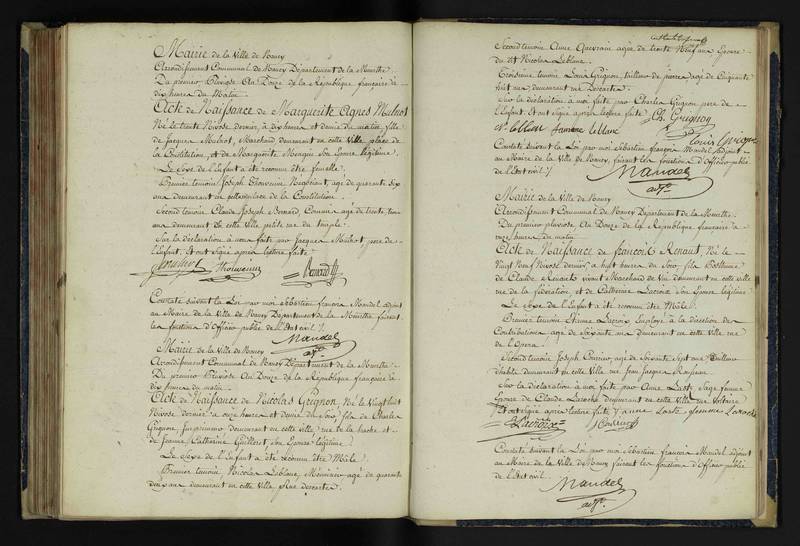 Mairie de la Ville de Nancy
Arrondissement Communal de Nancy Département de la Meurthe.
Du premier Pluviôse An Douze de la République française à
dix heures du Matin.
Acte de Naissance de Marguerite Agnès Mulnot
Née le trente Nivose dernier, à dix heures et demie du matin, fille
de Jacques Mulnot, Marchand demeurant en cette Ville place de
la Constitution, et de Marguerite Mengin son Epouse légitime.
Le Sexe de l'Enfant a été reconnu être femelle.
Premier témoin Joseph Thouvenin Négociant, agé de quarante six
ans demeurant en cette place de la Constitution.
Second témoin Claude Joseph Bernard, Commis agé de trente
ans demeurant en cette Ville petite rue du temple.
Sur la déclaration à nous faite par Jacques Mulnot pere de
l'Enfant. Et ont Signé après lecture faite.
Thouvenin
Constaté Suivant la Loi par moi Sébastien françois Mandel adjoint
au Maire de la Ville de Nancy Département de la Meurthe faisant
les fonctions d'Officier public de l'Etat civil.
Mandel
adjt.
Mairie de la Ville de Nancy
Arrondissement Communal de Nancy Département de la Meurthe.
Du premier Pluviose An Douze de la République française à
dix heures du matin.
Acte de Naissance de Nicolas Grignon, Né le Vingt huit
Nivose dernier à onze heures et demie du Soir, fils de Charles
Grignon, demeurant en cette Ville rue de la hache et
de Jeanne Catherine Guillerot, Son Epouse légitime.
Le Sexe de l'Enfant a été reconnu être Mâle.
Premier témoin, Nicolas Leblanc, Menuisier agé de quarante
deux ans demeurant en cette Ville Rue descartes.
Second témoin Anne agée de trente Neuf ans Epouse
du dit Nicolas Leblanc.
Troisième témoin Louis Grignon, tailleur de pierre agé de Cinquante
huit ans, demeurant rue Descartes.
Sur la déclaration à moi faite par Charles Grignon pere de
l'Enfant. Et ont Signé après lecture faite. Ch. Grignon
N. leblanc femme leblanc Louis Grignon
Constaté Suivant la Loi par moi Sébastien françois Mandel Adjoint
au Maire de la Ville de Nancy, faisant les fonctions d'Officier public
de l'Etat civil.
Mandel
adjt.
Mairie de la Ville de Nancy
Arrondissement Communal de Nancy Département de la Meurthe.
Du premier pluviose An Douze de la République française à
onze heures du matin.
Acte de Naissance de françois Renaut, Né le
Vingt Neuf Nivose dernier, à huit heures du Soir, fils
de Claude Renaut vivant Marchand de Vin demeurant en cette Ville
rue de la fédération et de Catherine Lacroix Son Epouse légitime.
Le Sexe de l'Enfant a été reconnu être Mâle.
Premier témoin Etienne Lacroix Employé à la direction des
Contributions agé de Soixante ans demeurant en cette Ville rue
de l'Opéra.
Second témoin Joseph agé de Soixante Sept ans
demeurant en cette Ville rue Jean Jacques Rousseau.
Sur la déclaration à moi faite par Anne Laste Sage femme
Epouse de Claude Laroche demeurant en cette Ville rue Voltaire
Et ont signé après lecture faite anne Laste femme Laroche
Lacroix
Constaté Suivant la Loi par moi Sébastien françois Mandel adjoint
au Maire de la Ville de Nancy faisant les fonctions d'Officier public
de l'Etat civil.
Mandel
adjt.